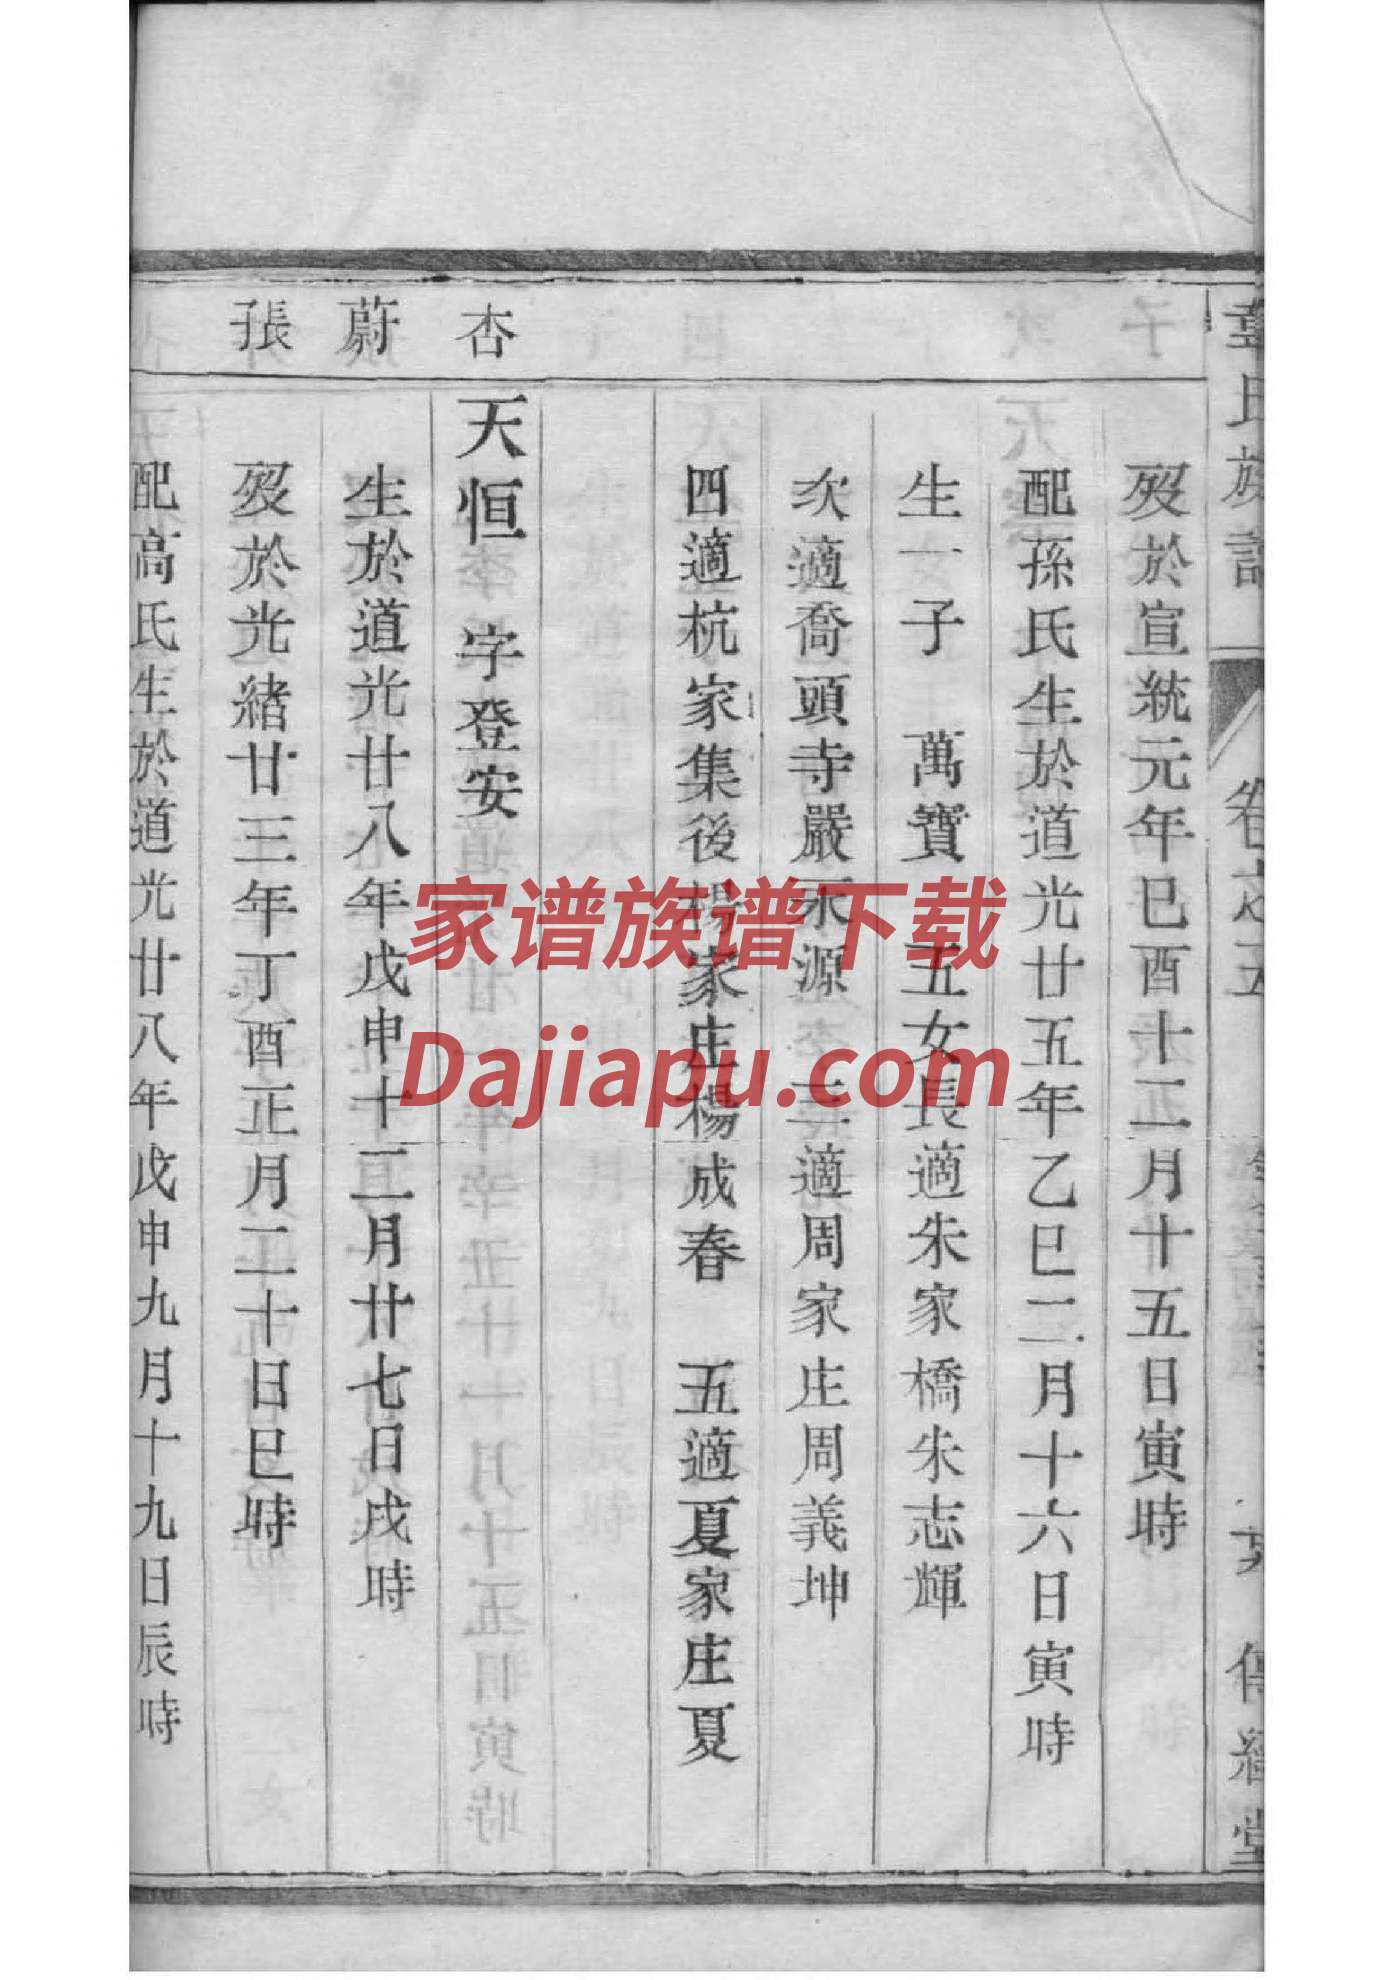 氏族譜 卷之五 傳經堂
歿於宣統元年巳酉十二月十五日寅時
配孫氏生於道光廿五年乙巳二月十六日寅時
生一子 萬寶 五女長適朱家橋朱志輝
次適喬頭寺嚴永源 三適周家庄周義坤
四適杭家集後楊家庄楊成春 五適夏家庄夏
杏
天恒 字登安
蔚
生於道光廿八年戊申十二月廿七日戌時
張
歿於光緒廿三年丁酉正月二十日巳時
配高氏生於道光廿八年戊申九月十九日辰時
家谱族谱下载
Dajiapu.com